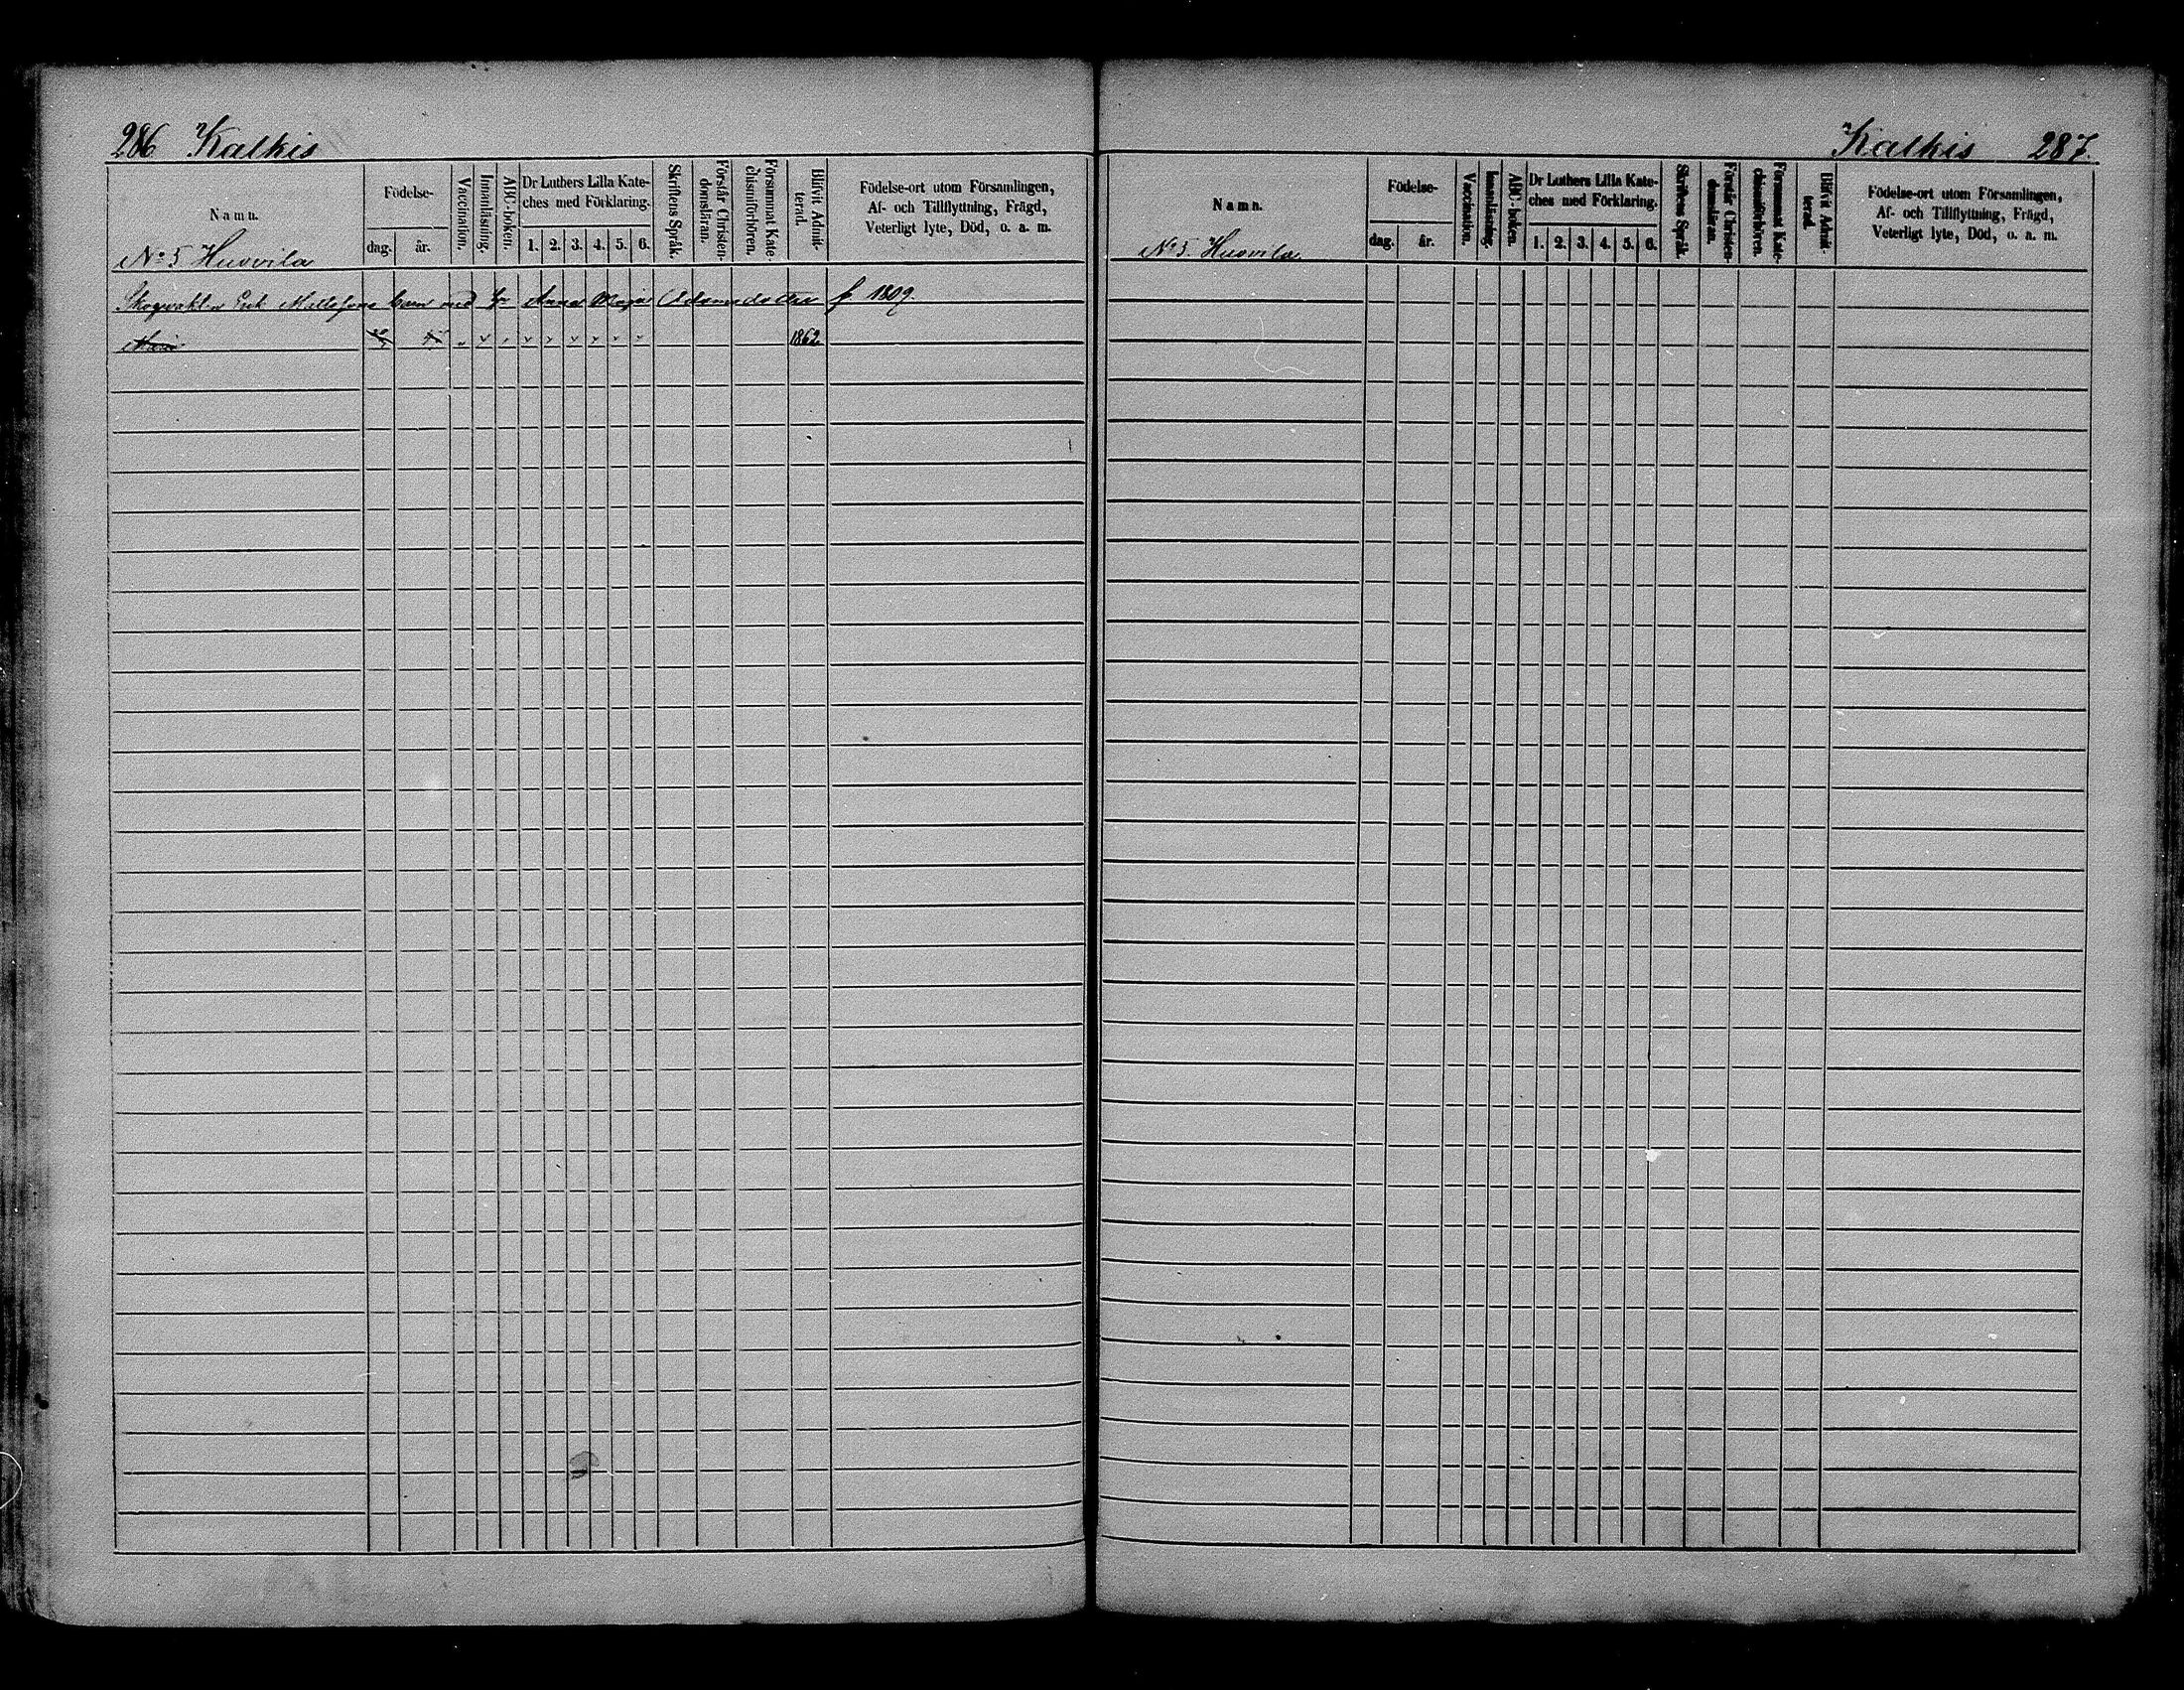 286 Kalkis
Namn.
Födelse-
dag.
år.
Vaccination.
Innanläsning.
ABC-boken.
Dr Luthers Lilla Kate-
ches med Förklaring.
1. 2. 3. 4. 5. 6.
Skriftens Språk.
Förstår Christen-
domsläran.
Försummat Kate-
chismiförhören.
Blifvit Admit-
terad.
Födelse-ort utom Församlingen,
Af- och Tillflyttning, Frägd,
Veterligt lyte, Död, o. a. m.
No 5 Huovila
Anna Maja Adamsdotter f. 1809.
Maria 1862
Kalkis 287.
Namn.
Födelse-
dag.
år.
Vaccination.
Innanläsning.
ABC-boken.
Dr Luthers Lilla Kate-
ches med Förklaring.
1. 2. 3. 4. 5. 6.
Skriftens Språk.
Förstår Christen-
domsläran.
Försummat Kate-
chismiförhören.
Blifvit Admit-
terad.
Födelse-ort utom Församlingen,
Af- och Tillflyttning, Frägd,
Veterligt lyte, Död, o. a. m.
No 5. Huovila